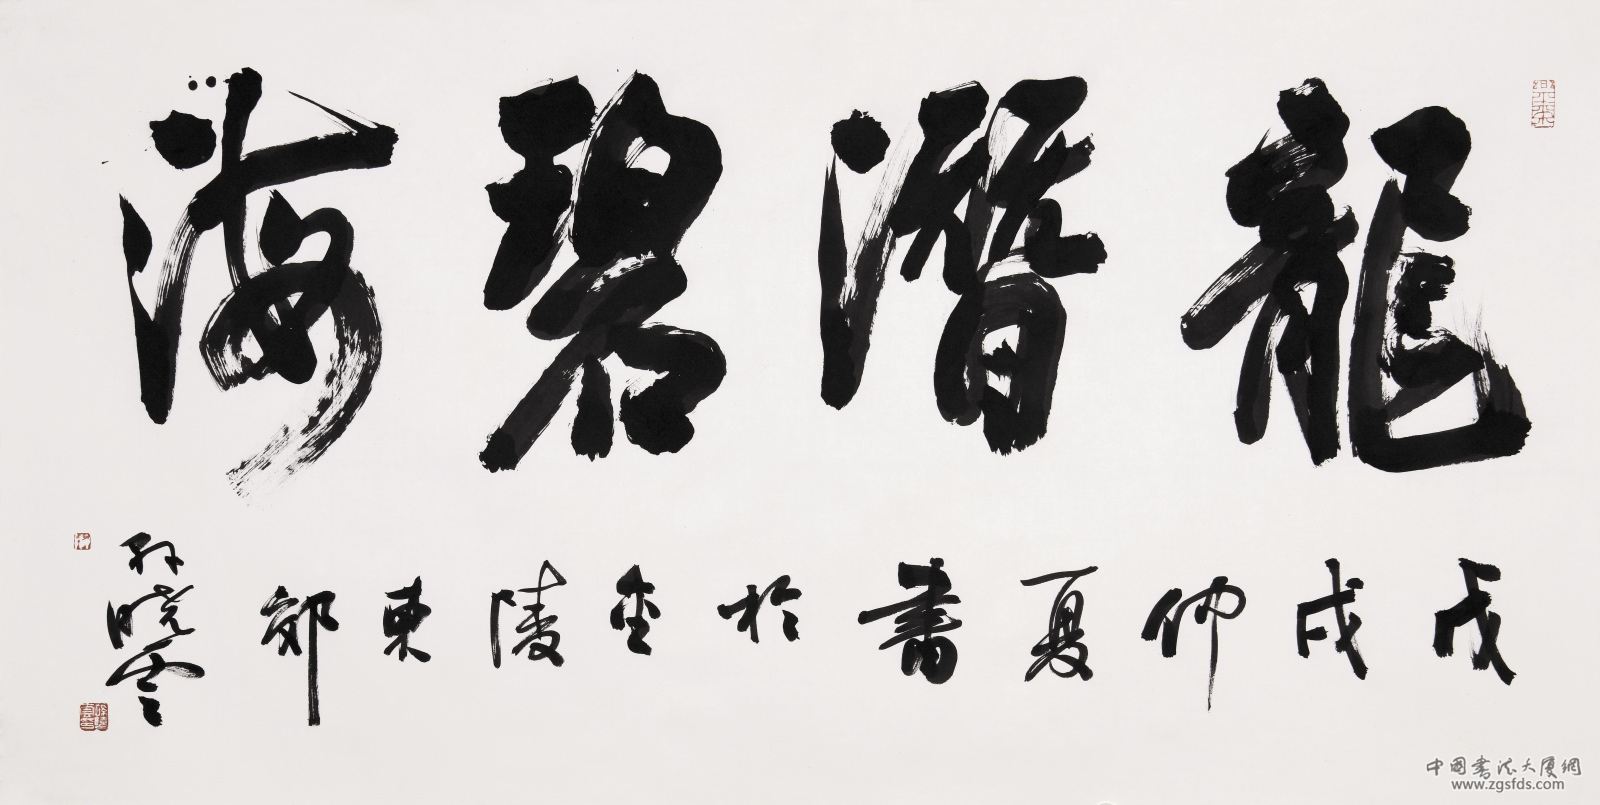 龍潛碧海
戊戌仲夏書於金陵東郊
孫曉雲
中國書法大廈網
www.zgsfds.com